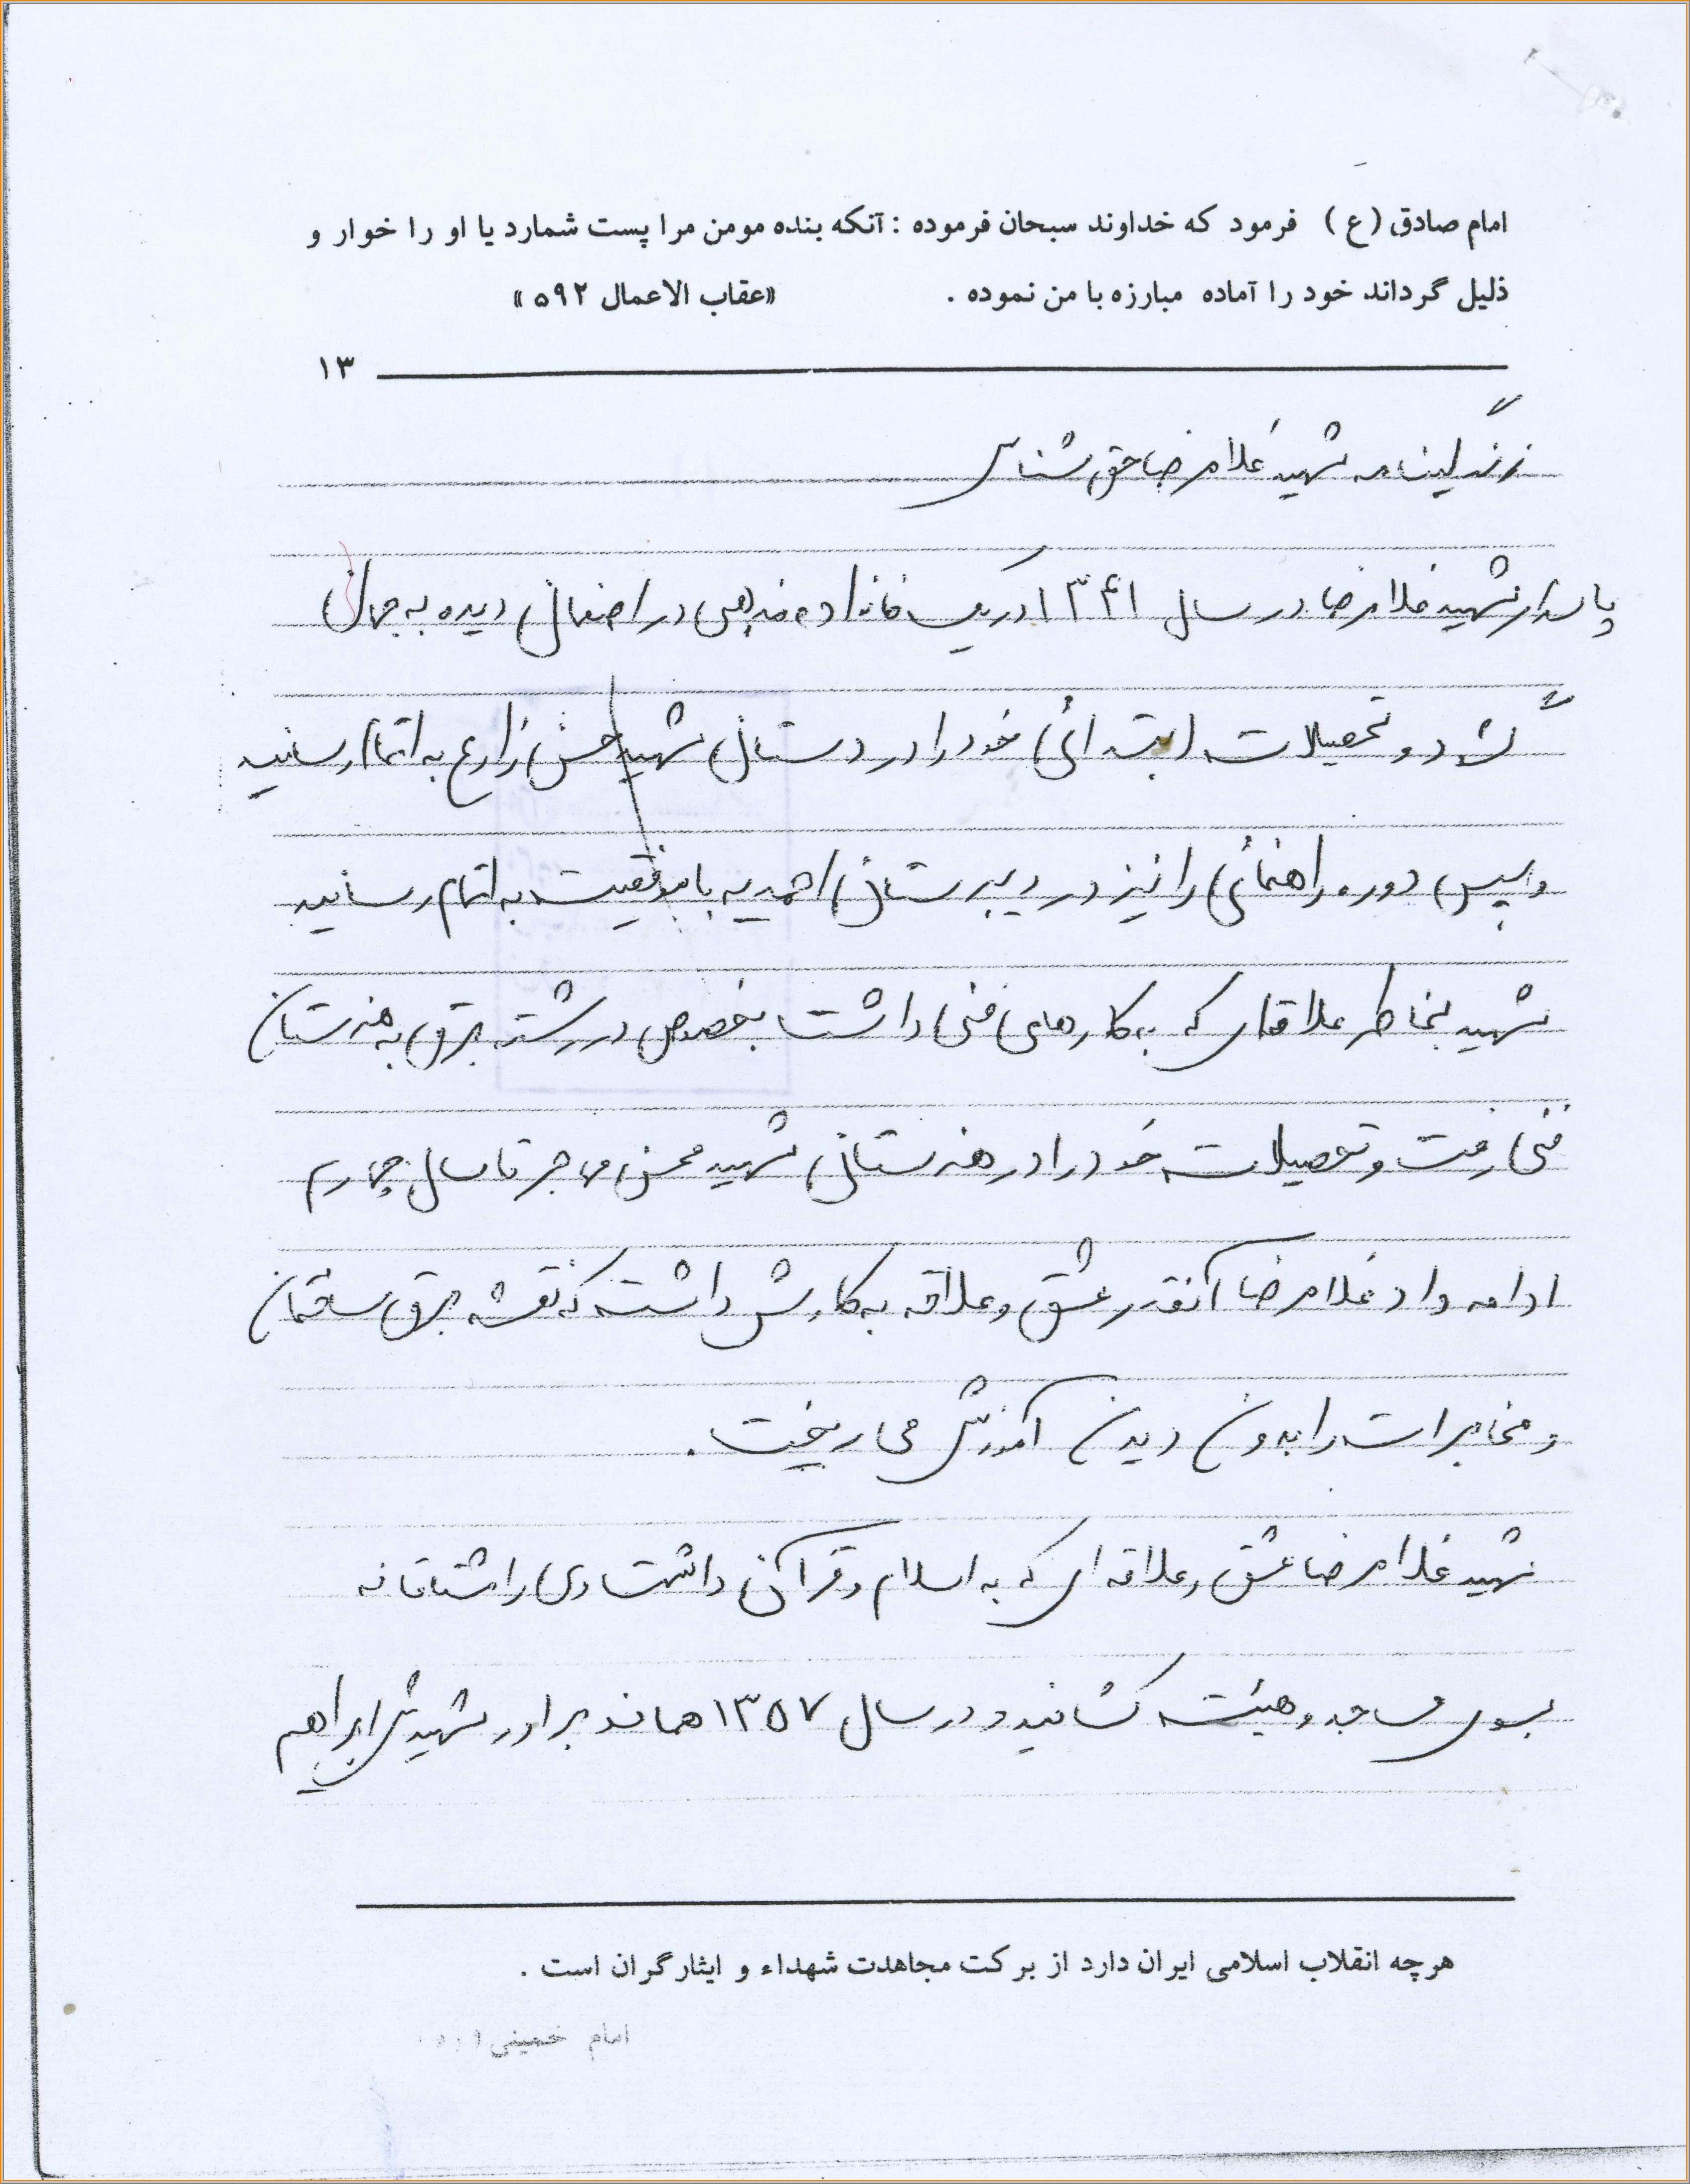 امام صادق (ع) فرمود که خداوند سبحان فرموده : آنکه بنده مومن مرا پست شمارد یا او را خوار و
ذلیل گرداند خود را آماده مبارزه با من نموده . «عقاب الاعمال ۵۹۲»
۱۳
زندگینامه شهید غلامرضا حق شناس
پاسدار شهید غلامرضا در سال ۱۳۴۱ در یک خانواده مذهبی در اصفهان دیده به جهان
گشود و تحصیلات ابتدائی خود را در دبستان شهید حسن زارع به اتمام رسانید
و سپس دوره راهنمائی را نیز در دبیرستان احمدیه با موفقیت به اتمام رسانید
شهید بخاطر علاقه‌ای که به کارهای فنی داشت بخصوص در رشته برق به هنرستان
فنی رفت و تحصیلات خود را در هنرستان شهید محسن مهاجر تا سال چهارم
ادامه داد غلامرضا آنقدر عشق و علاقه به کارش داشت که نقشه برق ساختمان
و مخابرات را بدون دیدن آموزش می ریخت .
شهید غلامرضا عشق و علاقه ای که به اسلام و قرآن داشت وی را مشتاقانه
بسوی مساجد و هیئت کشانید و در سال ۱۳۵۷ همانند برادر شهیدش ابراهیم
هرچه انقلاب اسلامی ایران دارد از برکت مجاهدت شهداء و ایثارگران است .
امام خمینی